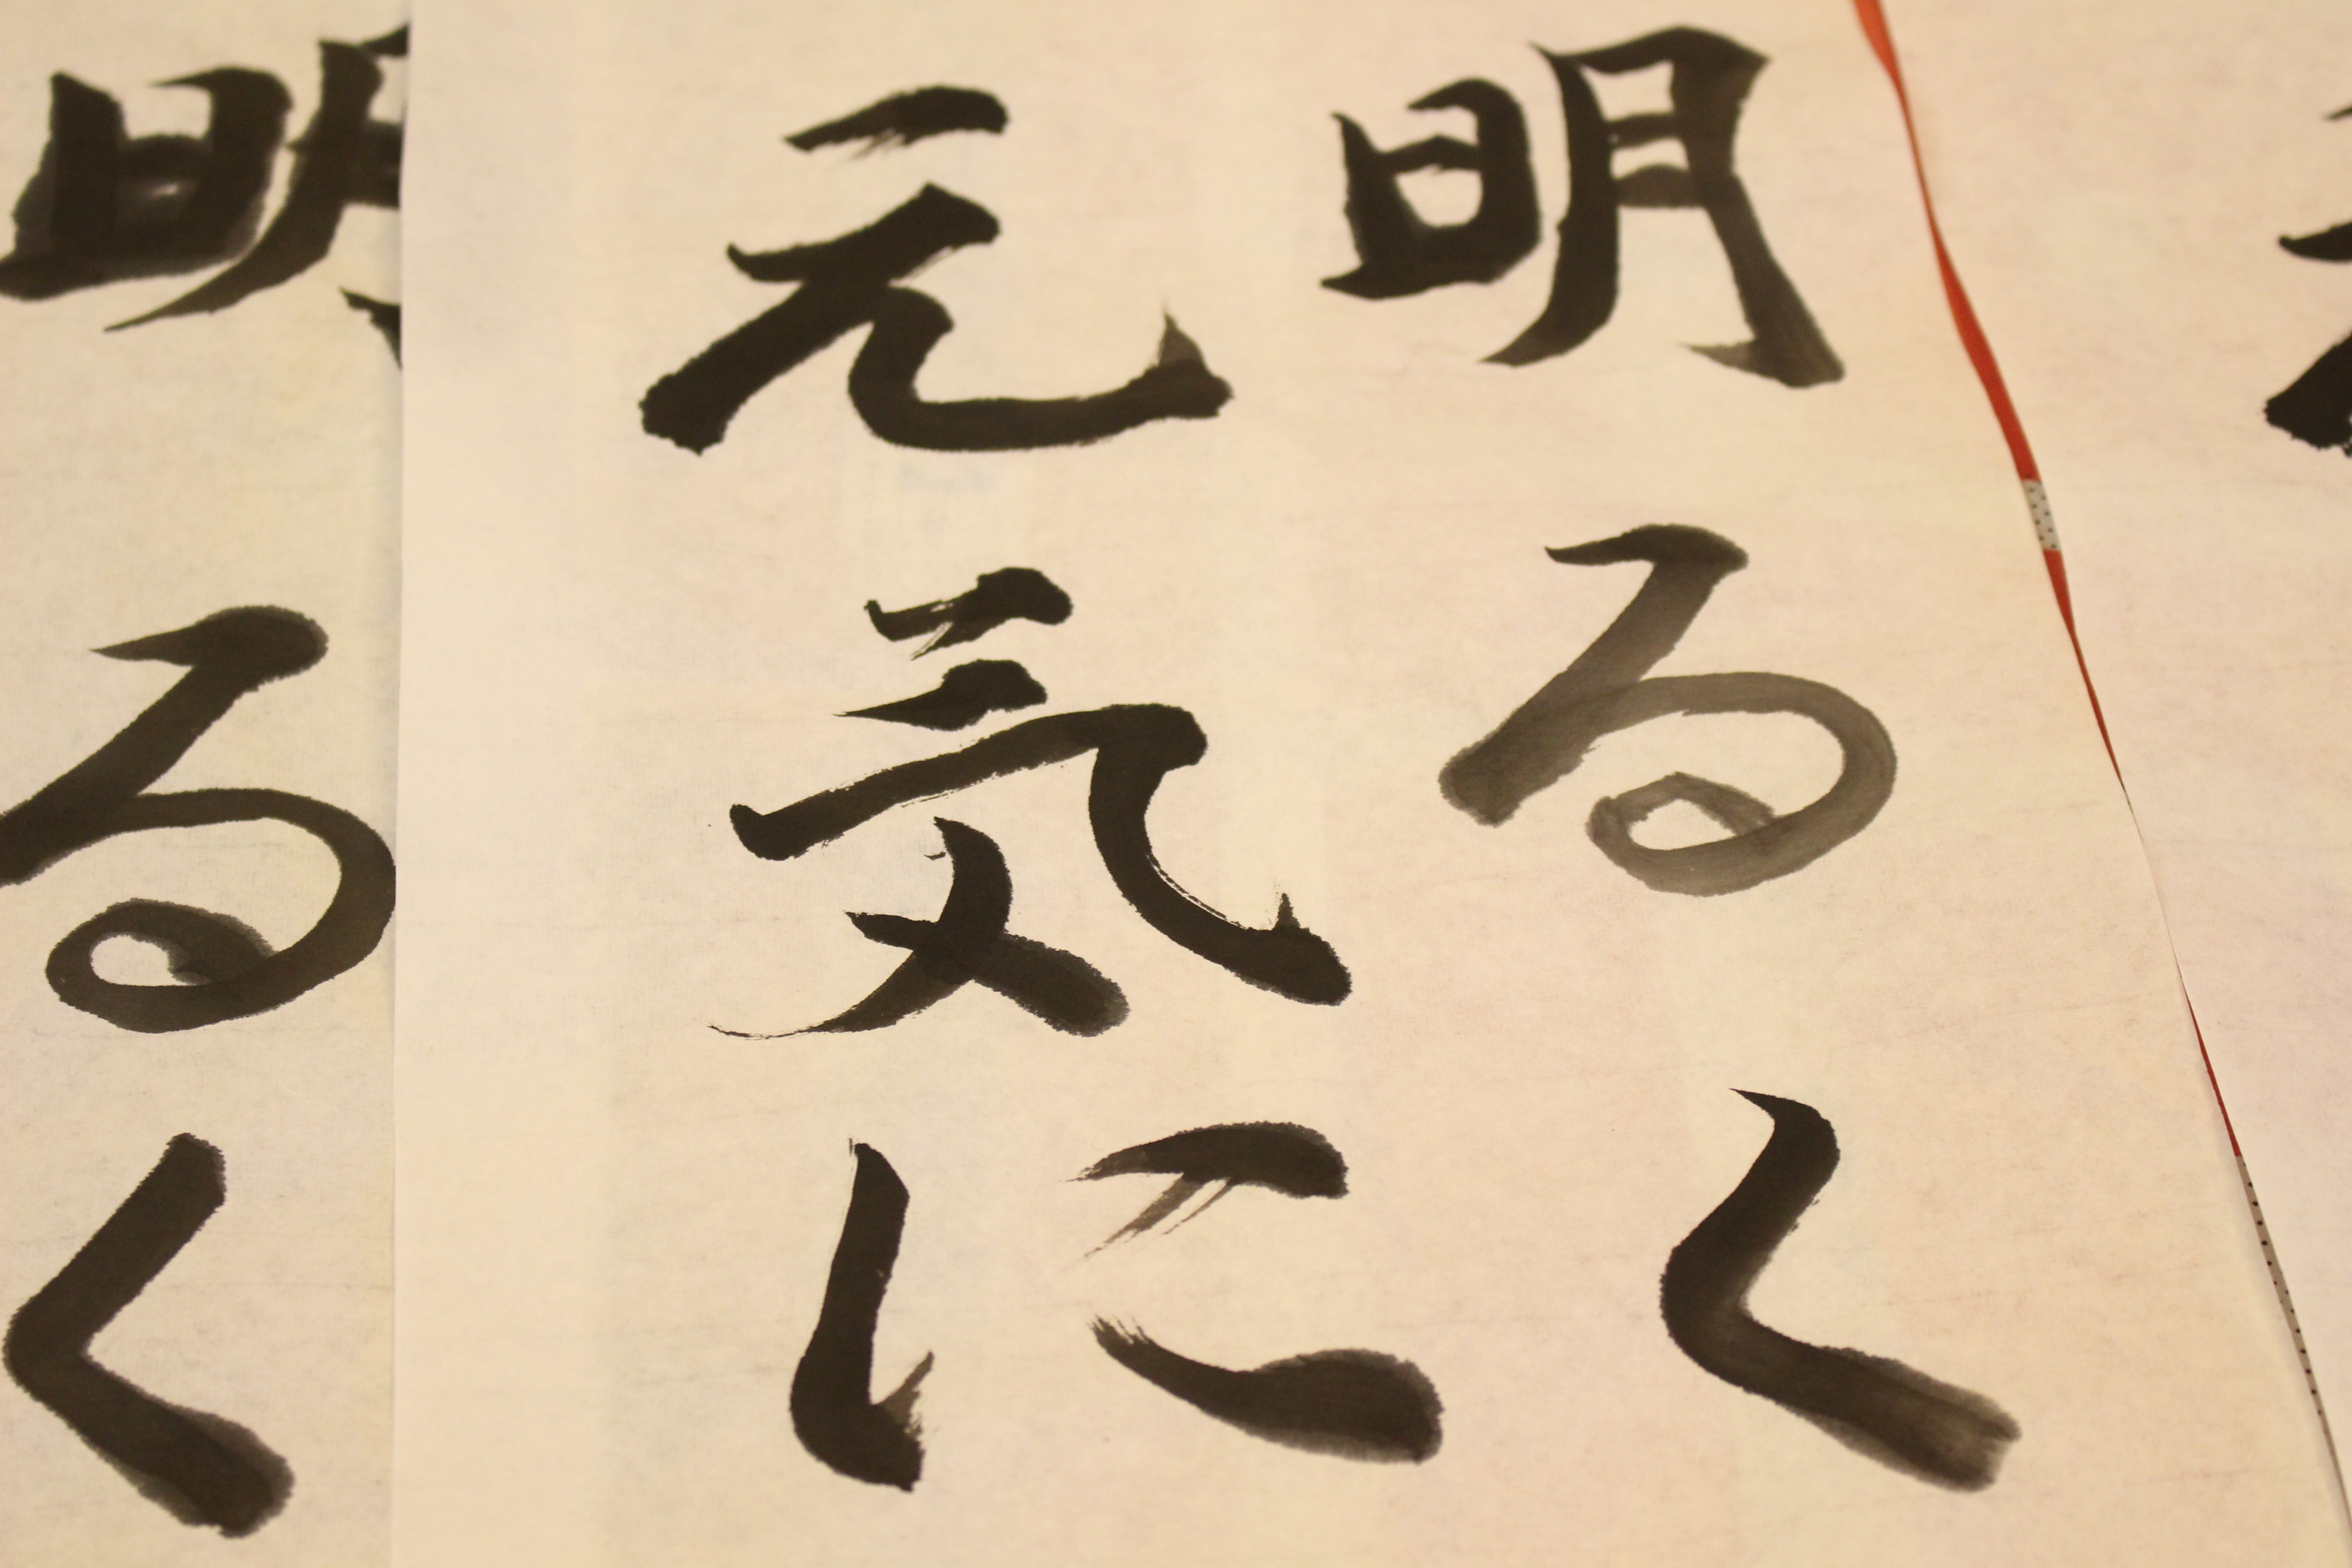 明るく
元気に
明るく